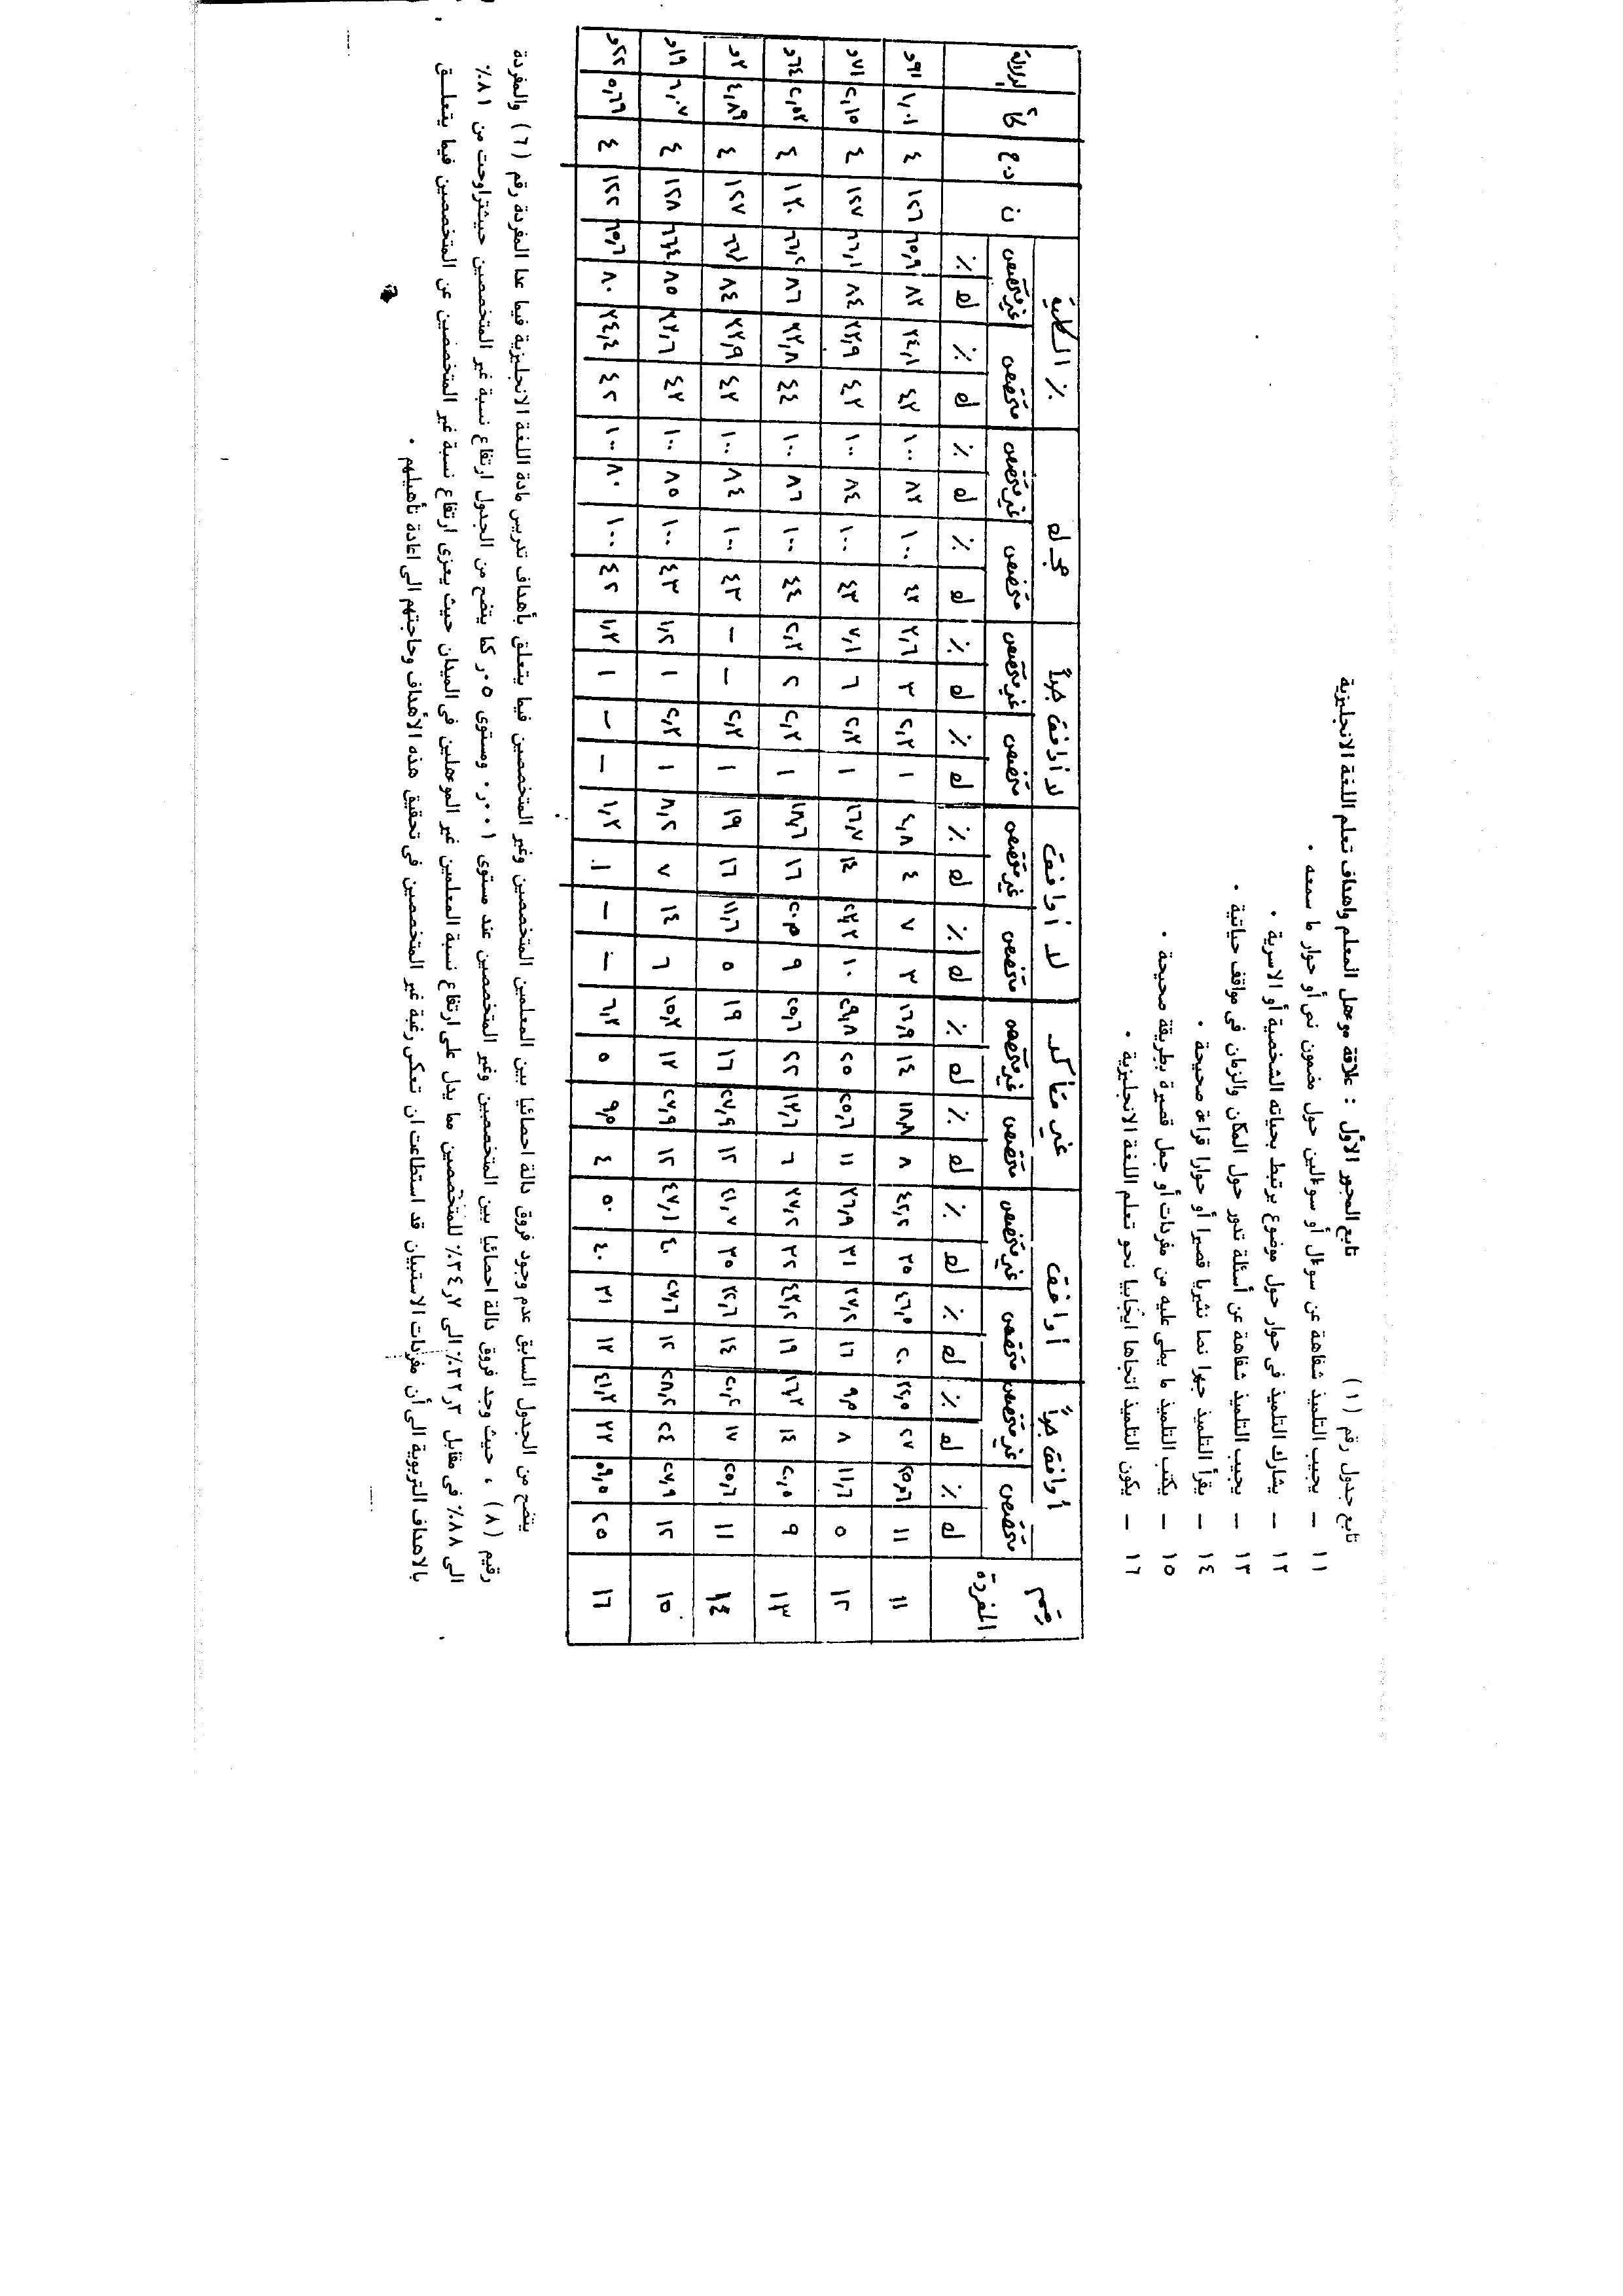 تابع جدول رقم (١) تابع المحور الأول : علاقة موءهل المعلم واهداف تعلم اللغة الانجليزية
١١ – يجيب التلميذ شفاهة عن سوءال أو سوءالين حول مضمون نص أو حوار ما سمعه .
١٢ – يشارك التلميذ فى حوار حول موضوع يرتبط بحياته الشخصية أو الاسرية .
١٣ – يجيب التلميذ شفاهة عن أسئلة تدور حول المكان والزمان فى مواقف حياتية .
١٤ – يقرأ التلميذ جهرا نصا نثريا قصيرا أو حوارا قراءة صحيحة .
١٥ – يكتب التلميذ ما يملى عليه من مفردات أو جمل قصيرة بطريقة صحيحة .
١٦ – يكون التلميذ اتجاها ايجابيا نحو تعلم اللغة الانجليزية .
رقم المفردة أوافق جداً أوافق غير متأكد لا أوافق لا أوافق جداً مجـ ك ٪ الكلية ن د.ح كا٢ الدلالة
متخصص غير متخصص متخصص غير متخصص متخصص غير متخصص متخصص غير متخصص متخصص غير متخصص متخصص غير متخصص متخصص غير متخصص
ك ٪ ك ٪ ك ٪ ك ٪ ك ٪ ك ٪ ك ٪ ك ٪ ك ٪ ك ٪ ك ٪ ك ٪ ك ٪ ك ٪
١١ ١١ ٢٥,٦ ٢٧ ٣٢,٥ ٢٠ ٤٦,٥ ٣٥ ٤٢,٢ ٨ ١٨,٨ ١٤ ١٦,٩ ٣ ٧ ٤ ٤,٨ ١ ٢,٣ ٣ ٣,٦ ٤٣ ١٠٠ ٨٣ ١٠٠ ٤٣ ٣٤,١ ٨٣ ٦٥,٩ ١٢٦ ٤ ١,٠١ ٩١و
١٢ ٥ ١١,٦ ٨ ٩,٥ ١٦ ٣٧,٢ ٣١ ٣٦,٩ ١١ ٢٥,٦ ٢٥ ٢٩,٨ ١٠ ٢٣,٣ ١٤ ١٦,٧ ١ ٢,٣ ٦ ٧,١ ٤٣ ١٠٠ ٨٤ ١٠٠ ٤٣ ٣٣,٩ ٨٤ ٦٦,١ ١٢٧ ٤ ٢,١٥ ٧١و
١٣ ٩ ٢٠,٥ ١٤ ١٦,٣ ١٩ ٤٣,٢ ٣٢ ٣٧,٢ ٦ ١٣,٦ ٢٢ ٢٥,٦ ٩ ٢٠,٥ ١٦ ١٨,٦ ١ ٢,٣ ٢ ٢,٣ ٤٤ ١٠٠ ٨٦ ١٠٠ ٤٤ ٣٣,٨ ٨٦ ٦٦,٢ ١٣٠ ٤ ٢,٥٣ ٦٤و
١٤ ١١ ٢٥,٦ ١٧ ٢٠,٢ ١٤ ٣٢,٦ ٣٥ ٤١,٧ ١٢ ٢٧,٩ ١٦ ١٩ ٥ ١١,٦ ١٦ ١٩ ١ ٢,٣ – – ٤٣ ١٠٠ ٨٤ ١٠٠ ٤٣ ٣٣,٩ ٨٤ ٦٦,١ ١٢٧ ٤ ٤,٨٩ ٣و
١٥ ١٢ ٢٧,٩ ٢٤ ٢٨,٢ ١٢ ٢٧,٦ ٤٠ ٤٧,١ ١٢ ٢٧,٩ ١٣ ١٥,٣ ٦ ١٤ ٧ ٨,٢ ١ ٢,٣ ١ ١,٢ ٤٣ ١٠٠ ٨٥ ١٠٠ ٤٣ ٣٣,٦ ٨٥ ٦٦,٤ ١٢٨ ٤ ٦,٠٧ ١٩و
١٦ ٢٥ ٥٩,٥ ٣٣ ٤١,٣ ١٣ ٣١ ٤٠ ٥٠ ٤ ٩,٥ ٥ ٦,٣ – – ١ ١,٣ – – ١ ١,٣ ٤٢ ١٠٠ ٨٠ ١٠٠ ٤٢ ٣٤,٤ ٨٠ ٦٥,٦ ١٢٢ ٤ ٥,٦٩ ٢٢و
يتضح من الجدول السابق عدم وجود فروق دالة احصائيا بين المعلمين المتخصصين وغير المتخصصين فيما يتعلق بأهداف تدريس مادة اللغة الانجليزية فيما عدا المفردة رقم (٦) والمفردة
رقيم (٨) ، حيث وجد فروق دالة احصائيا بين المتخصصين وغير المتخصصين عند مستوى ٠٠١ر٠ ومستوى ٠٥ر كما يتضح من الجدول ارتفاع نسبة غير المتخصصين حيثتراوحت من ٨١٪
الى ٨٨٪ فى مقابل ٣ر٣٢٪ الى ٧ر٣٤٪ للمتخصصين مما يدل على ارتفاع نسبة المعلمين غير الموءهلين فى الميدان حيث يعزى ارتفاع نسبة غير المتخصصين عن المتخصصين فيما يتعلق
بالاهداف التربوية الى أن مفردات الاستبيان قد استطاعت ان تعكس رغبة غير المتخصصين فى تحقيق هذه الأهداف وحاجتهم الى اعادة تأهيلهم .